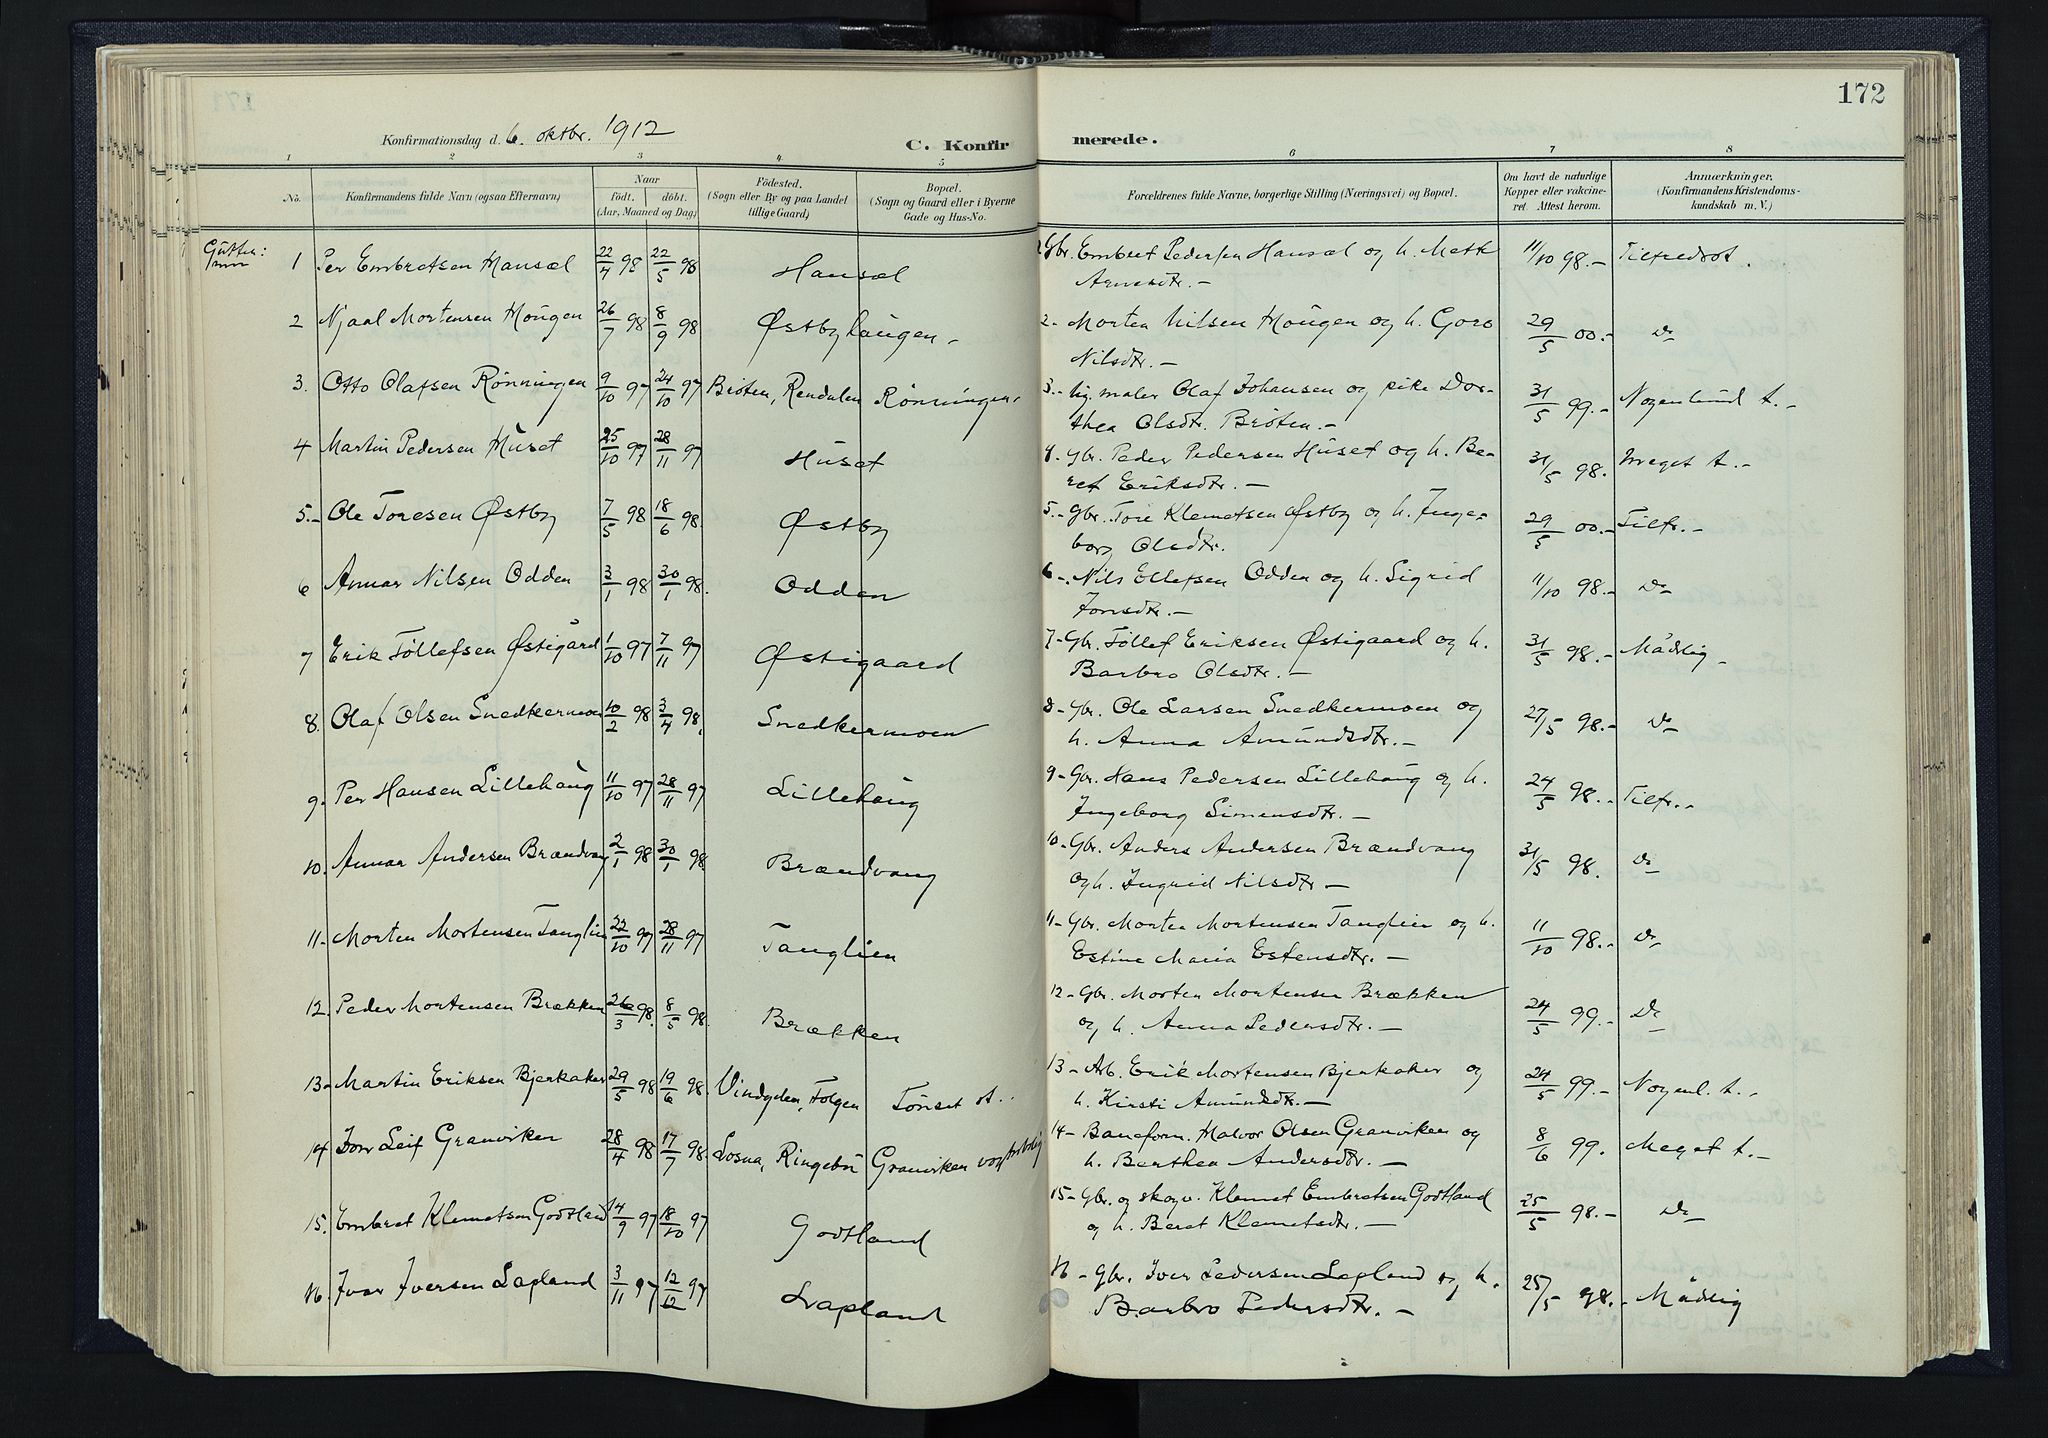 172
Konfirmationsdag d. 6. oktbr. 1912
C. Konfirmerede.
1 2 3 4 5 6 7 8
No. Konfirmandens fulde Navn (ogsaa Efternavn) Naar født. døbt. (Aar, Maaned og Dag) Fødested. (Sogn eller By og paa Landet tillige Gaard) Bopæl. (Sogn og Gaard eller i Byerne Gade og Hus-No. Forældrenes fulde Navne, borgerlige Stilling (Næringsvei) og Bopæl. Om havt de naturlige Kopper eller vakcineret. Attest herom. Anmærkninger. (Konfirmandens Kristendomskundskab m. V.)
Gutter:
1 Per Embretsen Hansæl 22/4 98 22/5 98 Hansæl 1 Gbr. Embret Pedersen Hansæl og h. Mette
Arnesdtr. — 11/10 98.– Tilfredsst.
2 Njaal Mortensen Haugen 26/7 98 8/9 98 Østby haugen. 2- Morten Nilsen Haugen og h. Goro
Nilsdtr. — 29/5 00.– Do
3. Otto Olafsen Rønningen 9/10 97 24/10 97 Bröten, Rendalen Rønningen. 3.- Ug. maler Olaf Johansen og pike Dor-
thea Olsdtr. Bröten. – 31/5 99.– Nogenlund t. –
4 Martin Pedersen Huset 25/10 97 28/11 97 Huset 4. Gbr. Peder Pedersen Huset og h. Be-
ret Eriksdtr. — 31/5 98. Meget t. –
5.- Ole Toresen Østby 7/5 98 18/6 98. Østby 5.- Gbr. Tore Klemetsen Østby og h. Inge-
borg Olsdtr. 29/5 00.– Tilfr. –
6 Annar Nilsen Odden 3/1 98 30/1 98. Odden 6-. Nils Ellefsen Odden og h. Sigrid
Jonsdtr. — 11/10 98.– Do
7 Erik Tøllefsen Østigård 1/10 97 7/11 97 Østigaard 7- Gbr. Tøllef Eriksen Østigaard og h.
Barbro Olsdtr. — 31/5 98.– Mådelig –
8. Olaf Olsen Snedkermoen 10/2 98 3/4 98. Snedkermoen 8- Gbr. Ole Larsen Snedkermoen og
h. Anna Amundsdtr. — 27/5 98.– Do
9. Per Hansen Lillehaug 11/10 97 28/11 97 Lillehaug 9- Gbr. Hans Pedersen Lillehaug og h.
Ingeborg Simensdtr. — 24/5 98.– Tilfr. –
10. Annar Andersen Brændvang 2/1 98 30/1 98. Brændvang 10- Gbr. Anders Andersen Brændvang
og h. Ingrid Nilsdtr — 31/5 98. Do
11- Morten Mortensen Tanglien 22/10 97 28/11 97 Tanglien 11- Gbr. Morten Mortensen Tanglien og h.
Estine Maria Estensdtr. — 11/10 98.– Do
12. Peder Mortensen Brækken 26/3 98. 8/5 98. Brækken 12- Gbr. Morten Mortensen Brækken
og h. Anna Pedersdtr. — 24/5 99.– Do
13- Martin Eriksen Bjerkaker 29/5 98 19/6 98. Vindgelen, Folgen Tönset st.. 13- Arb. Erik Mortensen Bjerkaker og
h. Kirsti Amundsdtr. — 24/5 99.– Nogenl. t. –
14 Jon Leif Granviken 28/4 98 17/7 98. Losna, Ringebu Granviken vogterbolig 14- Baneform. Halvor Olsen Granviken og
h. Berthea Andersdtr. — 8/6 99. Meget t. –
15. Embret Klemetsen Godtland 14/9 97 18/10 97 Godtland 15- Gbr. og skogv. Klemet Embretsen Godtland
og h. Beret Klemetsdtr. — 25/5 98.– Do
16. Ivar Iversen Lapland 3/11 97 12/12 97 Lapland 16 - Gbr. Iver Pedersen Lapland og h.
Barbro Pedersdtr. — 25/5 98.– Mådelig